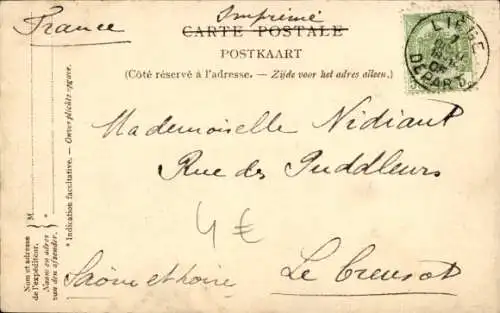 France
Imprimé
CARTE POSTALE
POSTKAART
(Côté réservé à l'adresse. — Zijde voor het adres alleen.)
LIÉGE
DEPART
Mademoiselle Nidiant
Rue des Puddleurs
4 €
Saône et Loire
Le Creusot
Nom et adresse
de l'expéditeur.
Naam en adres
van den afzender.
M.
* Indication facultative. — Onverplichte opgave.